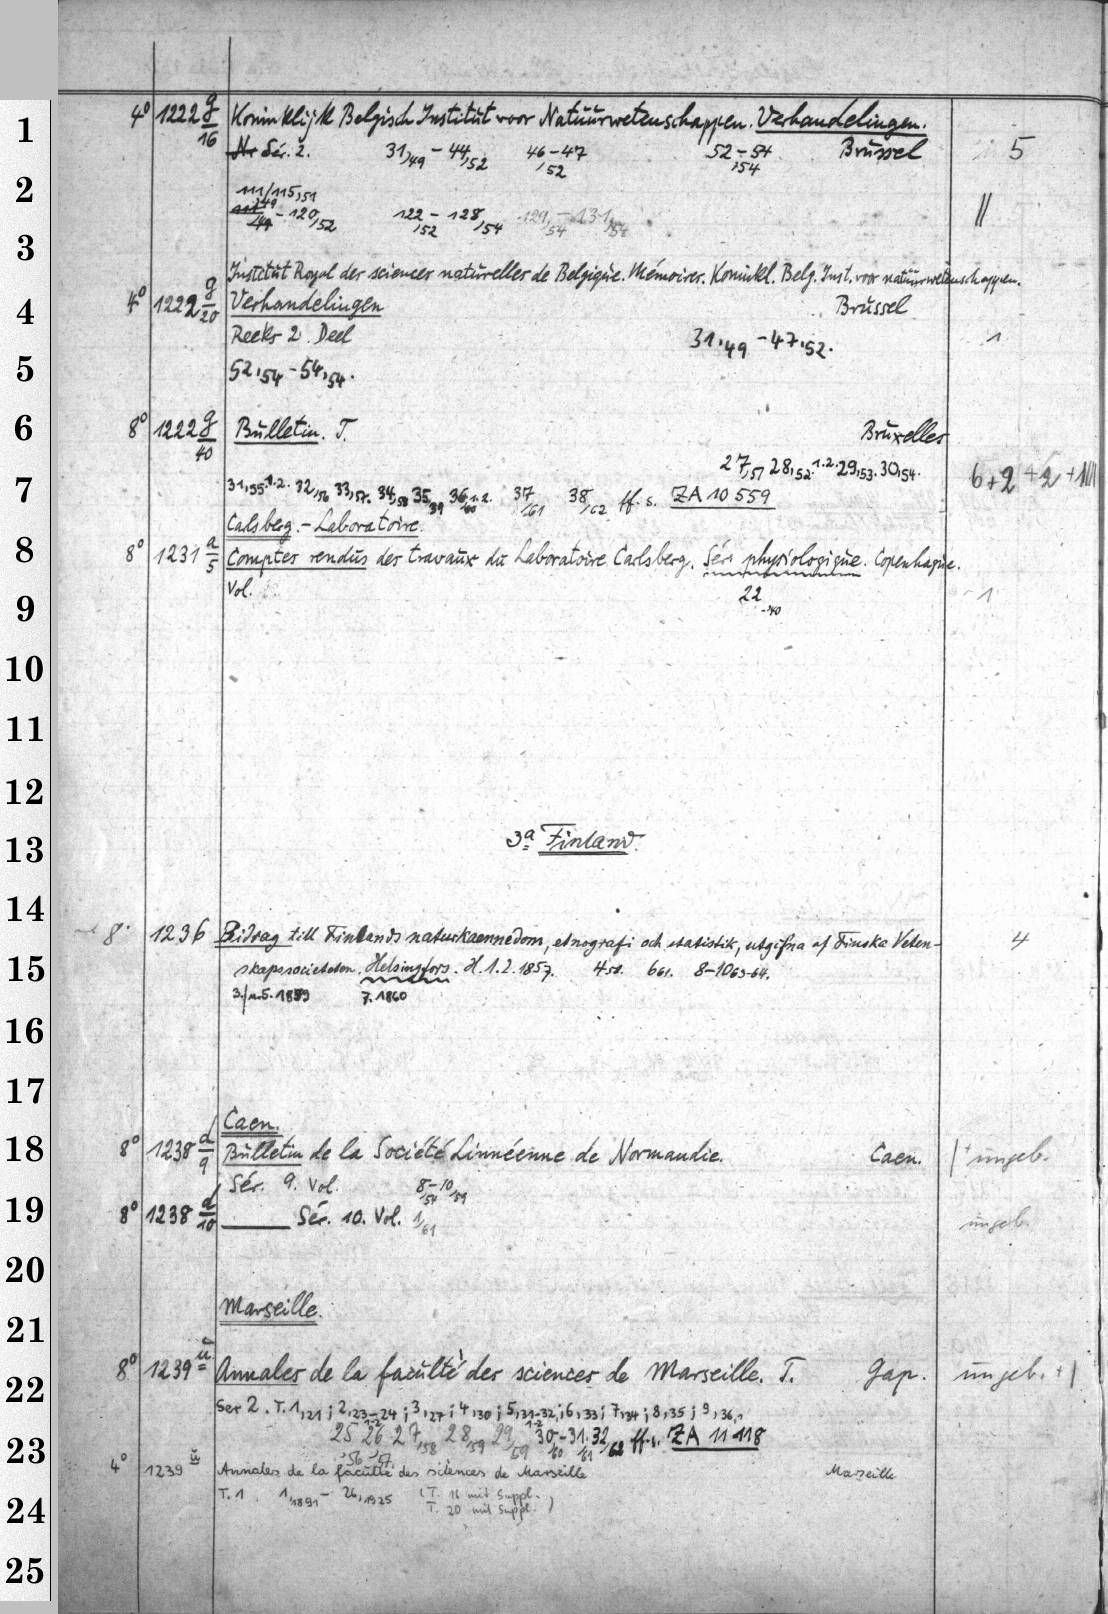 1 4° 1222 g/16 Koninklijk Belgisch Instituut voor Natuurwetenschappen. Verhandelingen. 5
Nr Sér. 2. 31,49 - 44,52 46-47,52 52-54,54 Brüssel
2 111/115,51
,49 - 120,52 122,52 - 128,54 129,54 - 131,54 ||
3
Institut Royal des sciences naturelles de Belgique. Mémoires. Koninkl. Belg. Inst. voor natuurwetenschappen.
4 4° 1222 g/20 Verhandelingen Brüssel
Reeks 2. Deel 31,49 - 47,52. 1
5 52,54 - 54,54.
6 8° 1222 g/40 Bulletin. T. Bruxelles
27,51 28,52.1.2. 29,53. 30,54. 6+2+2+1||||
7 31,55.1.2. 32,56 33,57. 34,58 35,59 36,60 1.2. 37,61 38,62 ff. s. ZA 10 559
Carlsberg.-Laboratoire.
8 8° 1231 a/5 Comptes rendus des travaux du Laboratoire Carlsberg. Sér. physiologique. Copenhague.
9 Vol. 22,-40 1
10
11
12
13 3a Finland.
14
8° 1236 Bidrag till Finlands naturkaennedom, etnografi och statistik, utgifna af Finska Veten- 4
15 skapssocieteten. Helsingfors. H. 1.2. 1857. 4 58. 6 61. 8-10 63-64.
3./u.5. 1859 7. 1860
16
17
Caen.
18 8° 1238 d/9 Bulletin de la Société Linnéenne de Normandie. Caen. ungeb.
Sér. 9. Vol. 8,54-10,59
19 8° 1238 d/10 Sér. 10. Vol. 1,61 ungeb.
20
Marseille.
21
22 8° 1239 ü Annales de la faculté des sciences de Marseille. T. Gap. ungeb. + |
Ser 2. T. 1,21; 2,23-24; 3,27; 4,30; 5,31-32; 6,33; 7,34; 8,35; 9,36,1-2
23 25,56 26,57 1-2 27,58 28,59 29,59 30,60-31,61 32,62 ff. s. ZA 11 118
4° 1239 Annales de la faculté des sciences de Marseille Marseille
24 T. 1 1,1891 - 26,1925 (T. 16 mit Suppl.
T. 20 mit Suppl.)
25